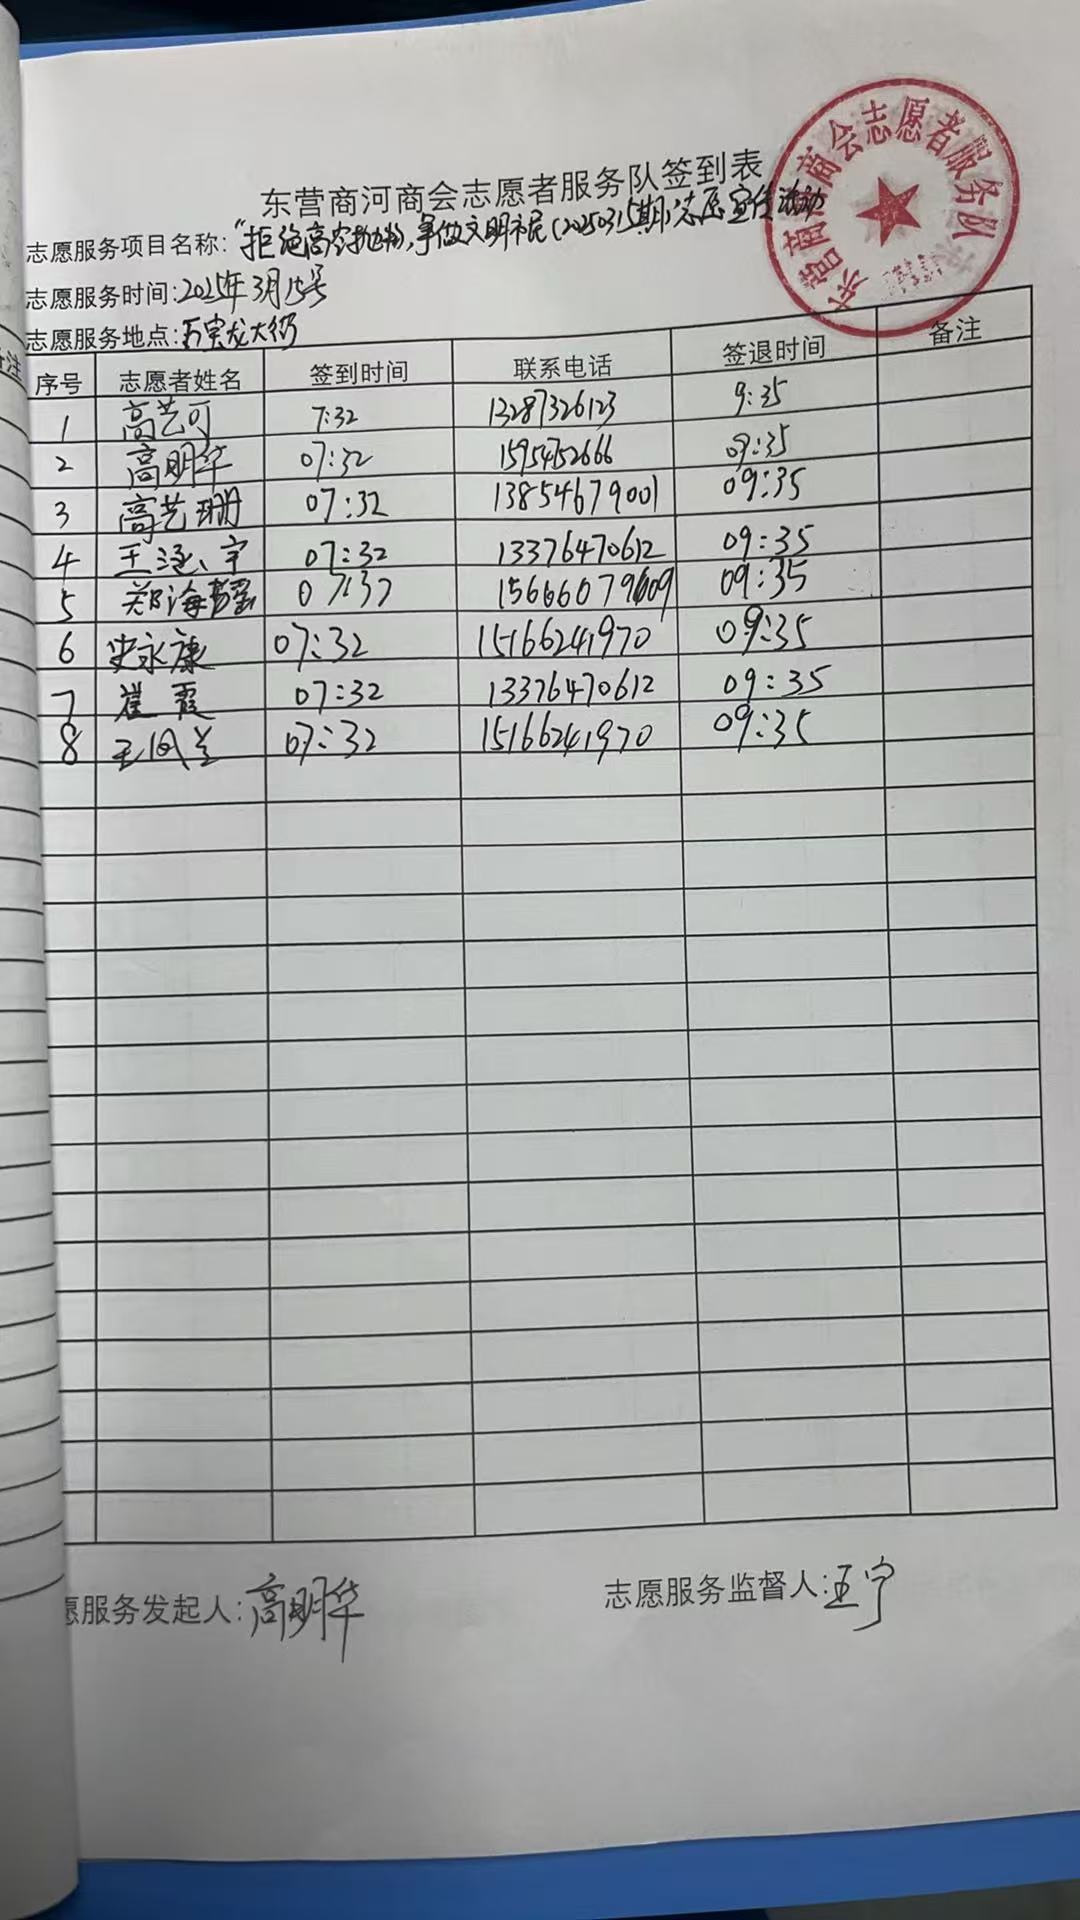 东营商河商会志愿者服务队签到表
志愿服务项目名称:“拒绝高空抛物,争做文明市民(20250315期)志愿宣传活动
志愿服务时间:2025年3月15号
志愿服务地点:万宝龙大街
序号 志愿者姓名 签到时间 联系电话 签退时间 备注
1 高艺可 7:32 13287326123 9:35
2 高明华 07:32 15954752666 09:35
3 高艺珊 07:32 13854679001 09:35
4 王涵宇 07:32 13376470612 09:35
5 郑海 07:32 15666079609 09:35
6 史永康 07:32 15166241970 09:35
7 崔霞 07:32 13376470612 09:35
8 王凤兰 07:32 15166241970 09:35
愿服务发起人:高明华 志愿服务监督人:王宁
东营商河商会志愿者服务队
备注